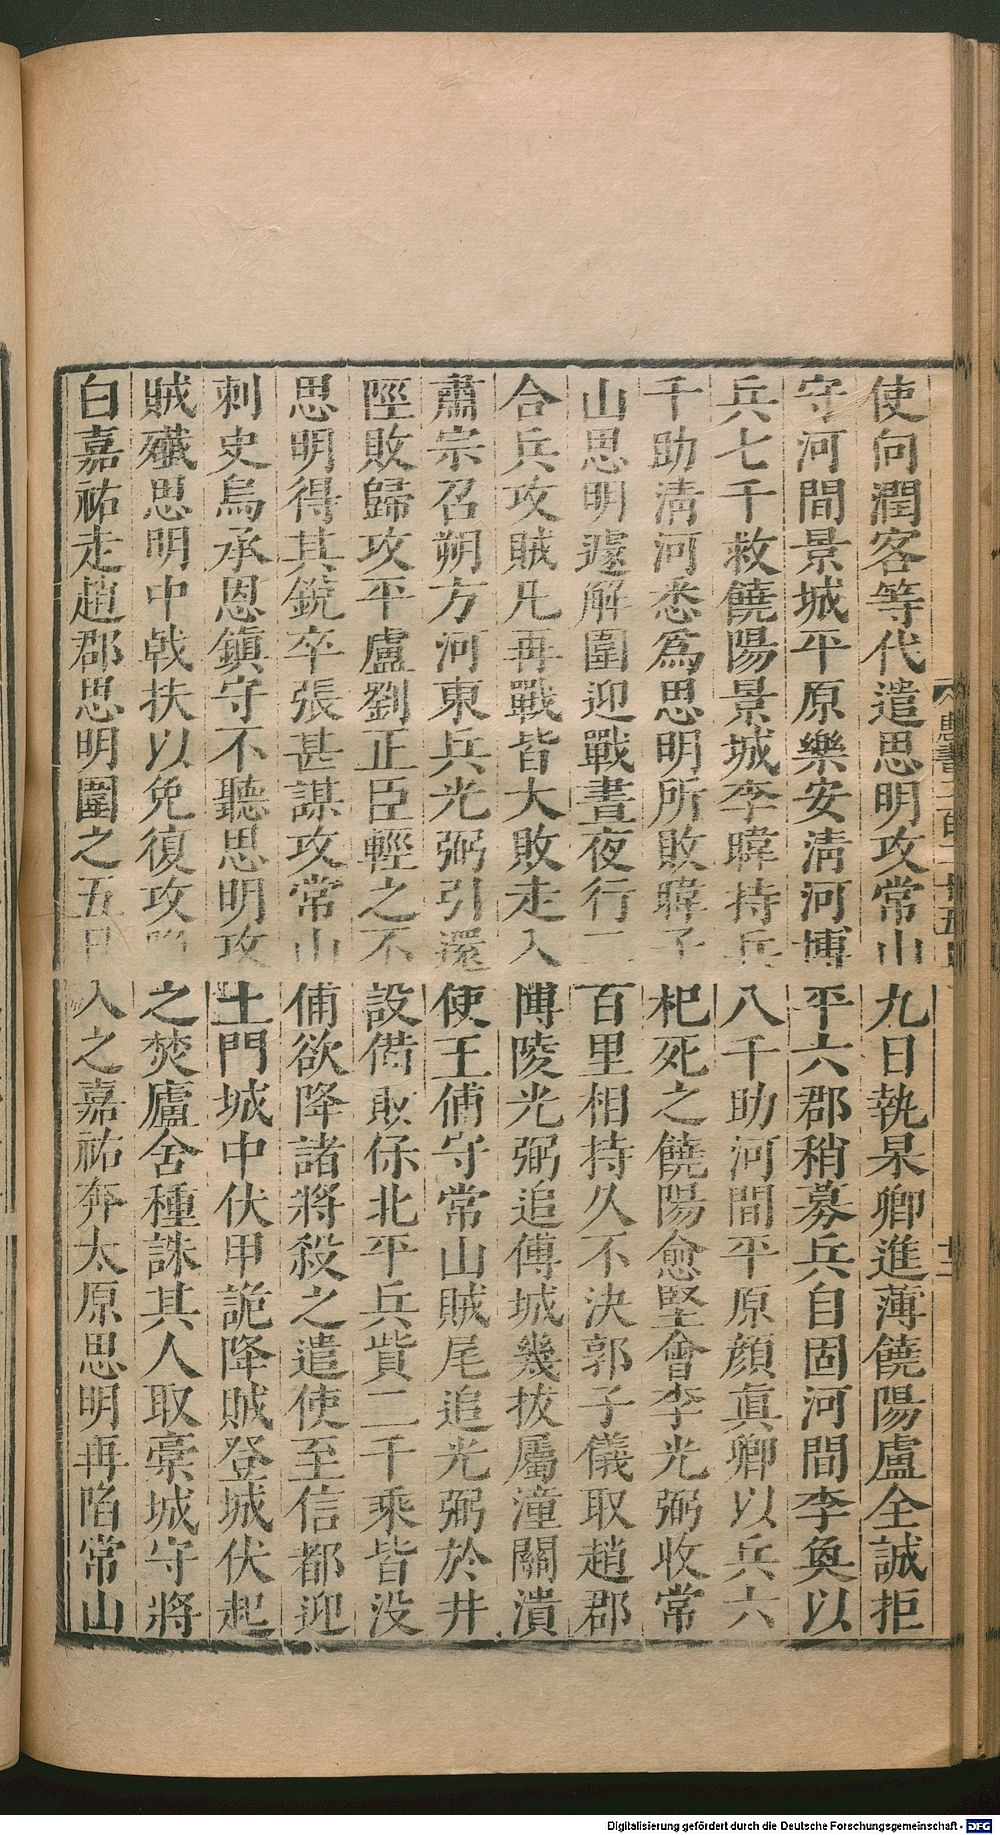 使向潤客等代遣思明攻常山九日執杲卿進薄饒陽盧全誠拒
守河間景城平原樂安清河博平六郡稍募兵自固河間李奐以
兵七千救饒陽景城李暐持兵八千助河間平原顔眞卿以兵六
千助淸河悉爲思明所敗暐子杞死之饒陽愈堅會李光弼收常
山思明遽解圍迎戰晝夜行二百里相持久不決郭子儀取趙郡
合兵攻賊凡再戰皆大敗走入博陵光弼追傅城幾拔屬潼關潰
肅宗召朔方河東兵光弼引還使王俌守常山賊尾追光弼於井
陘敗歸攻平盧劉正臣輕之不設備敗保北平兵貲二千乘皆没
思明得其銳卒張甚謀攻常山俌欲降諸將殺之遣使至信都迎
刺史烏承恩鎭守不聽思明攻土門城中伏甲詭降賊登城伏起
賊殲思明中戟扶以免復攻陷之焚廬舍種誅其人取藁城守將
白嘉祐走趙郡思明圍之五日入之嘉祐奔太原思明再陷常山
十三
Digitalisierung gefördert durch die Deutsche Forschungsgemeinschaft - DFG